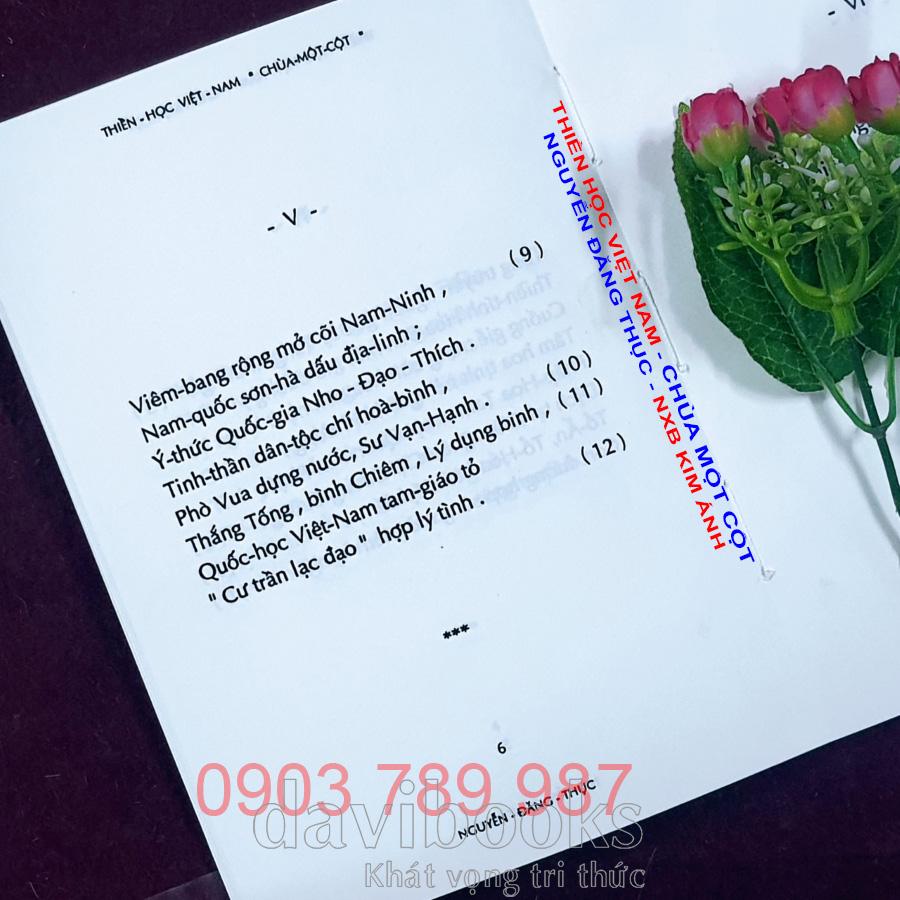 THIỀN - HỌC VIỆT - NAM * CHÙA-MỘT-CỘT *
- V -
(9)
Viêm-bang rộng mở cõi Nam-Ninh ,
Nam-quốc sơn-hà dấu địa-linh ;
Ý-thức Quốc-gia Nho - Đạo - Thích .
(10)
Tinh-thần dân-tộc chí hoà-bình ,
(11)
Phò Vua dựng nước, Sư Vạn-Hạnh .
Thắng Tống , bình Chiêm , Lý dụng binh ,
(12)
Quốc-học Việt-Nam tam-giáo tỏ
" Cư trần lạc đạo " hợp lý tình .
***
6
NGUYỄN - ĐĂNG - THỤC
- VI
THIỀN HỌC VIỆT NAM - CHÙA MỘT CỘT
NGUYỄN ĐĂNG THỤC - NXB KIM ÁNH
0903 789 987
davibooks
Khát vọng tri thức